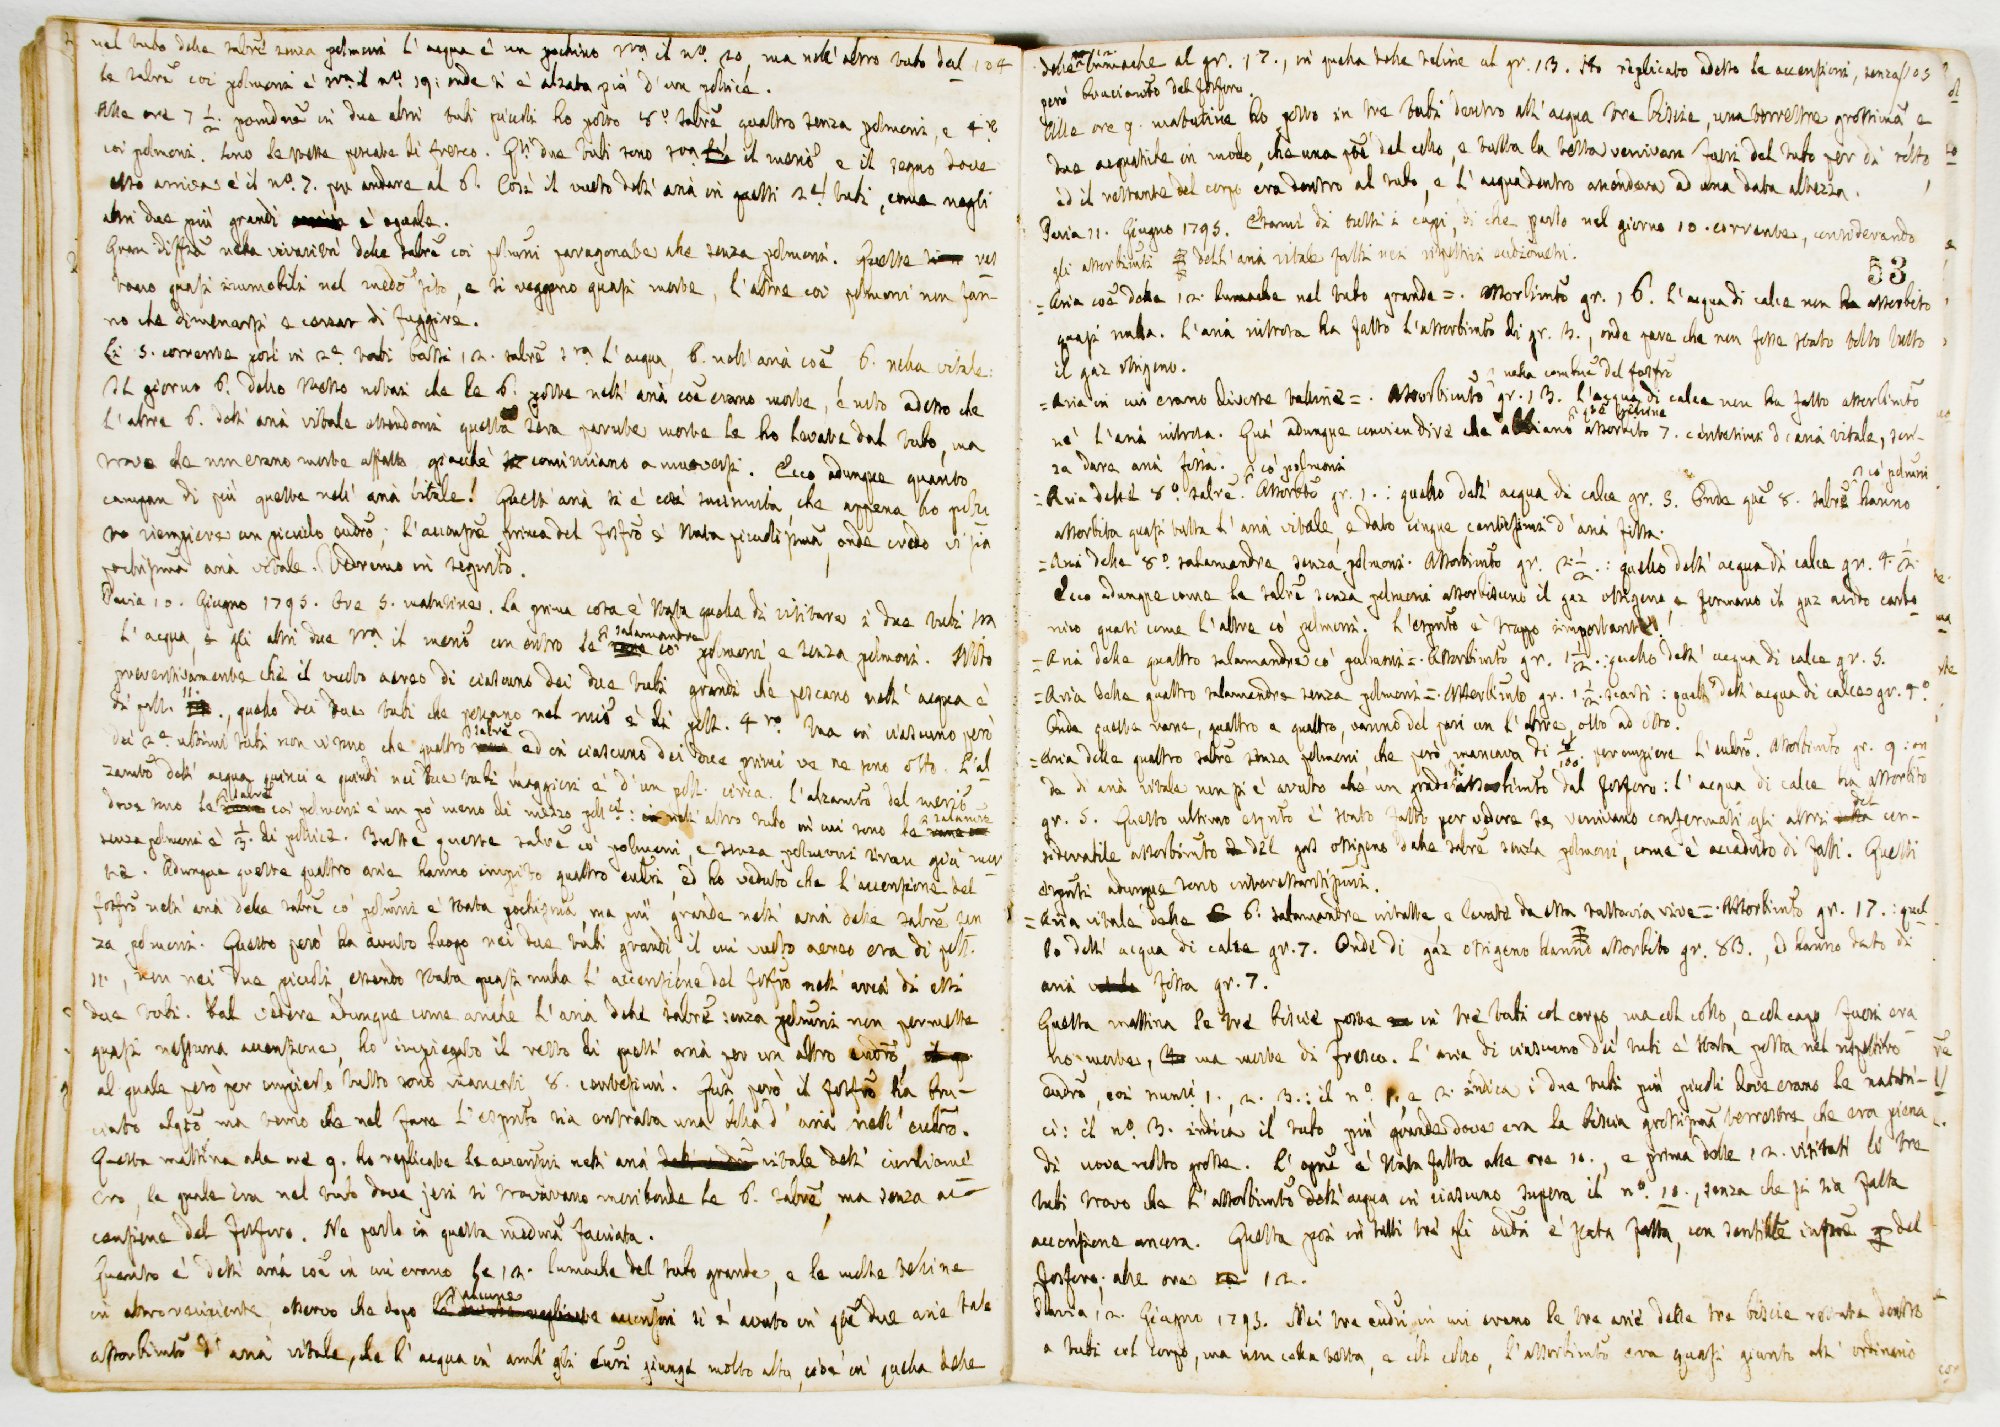 nel tubo delle salre senza polmoni l'acqua è un pochino sopra il nº. 20, ma nell'altro tubo del 104
le salre coi polmoni è sopra il nº. 19: onde si è alzata più d'un pollice.
Alle ore 7 1/2. pomdne in due altri tubi piccoli ho posto 8º. salre, quattro senza polmoni, e 4.
coi polmoni. Sono le stesse pescate di fresco. Qti due tubi sono sopra il merio e il segno dove
esso arriva è il nº. 7. per andare al 6. Così il vuoto dell'aria in questi 2 tubi, come negli
altri due più grandi è eguale.
Gran diffza nella vivacità delle salre coi polmoni paragonate alle senza polmoni. Queste res
tano quasi immobili nel medo sito, e si veggono quasi morte, l'altre coi polmoni non fan-
no che dimenarsi e cercar di fuggire.
Li 5. corrente posi in 2 tubi bassi 12. salre sopra l'acqua, 6. nell'aria coe 6. nella vitale:
Il giorno 6. dello stesso notai che le 6. poste nell'aria coe erano morte, e noto adesso che
l'altre 6. dell'aria vitale essendomi questa sera parute morte le ho levate dal tubo, ma
trovo che non erano morte affatto giacchè cominciano a muoversi. Ecco adunque quanto
campan di più queste nell'aria vitale! Quest'aria si è così sminuita, che appena ho potu
to riempiere un piccolo eudro; l'accensne prima del fosfro è stata piccolissima, onde credo vi sia
pochissima aria vitale. Vedremo in seguito.
Pavia 10. Giugno 1795. Ore 5. matutine. La prima cosa è stata quella di visitare i due tubi sopra
l'acqua, e gli altri due sopra il merio con entro le salamandre co' polmoni, e senza polmoni. Noto
preventivamente che il vuoto aereo di ciascuno dei due tubi grandi che pescano nell'acqua è
di poll. 11., quello dei due tubi che pescano nel mrio è di poll. 4 Ma in ciascuno però
dei 2 ultimi tubi non vi sono che quattro salre ed in ciascuno dei due primi ve ne sono otto. L'al
zamto dell'acqua quinci e quindi nei due tubi maggiori è d'un poll. circa. L'alzamto del merio
dove sono le salre coi polmoni è un po' meno di mezzo poll: nell'altro tubo in cui sono le salamre
senza polmoni è 1/3. di pollice. Tutte queste salre co' polmoni, e senza polmoni eran già mor
te. Adunque queste quattro arie hanno empito quattro eudri ed ho veduto che l'accensione del
fosfro nell'aria delle salre co' polmoni è stata pochissima ma più grande nell'aria delle salre sen
za polmoni. Questo però ha avuto luogo nei due tubi grandi, il cui vuoto aereo era di poll.
11., non nei due piccoli, essendo stata quasi nulla l'accensione del fosfro nell'aria di essi
due tubi. Sul vedere adunque come anche l'aria delle salre senza polmoni non permette
quasi nessuna accensione, ho impiegato il resto di quell'aria per un altro eudro,
al quale però per empierlo tutto sono mancati 8. centesimi. Qui però il fosfro ha bru-
ciato alqto ma temo che nel fare l'espmto sia entrata una bolla d'aria nell'eudro.
Questa mattina alle ore 9. ho replicate le accensni nell'aria vitale dell'eudiome
tro, la quale era nel tubo dove jeri si trovavano moribonde le 6. salre, ma senza ac-
censione del fosforo. Ne parlo in questa medma facciata.
Quanto è dell'aria coe in cui erano le 12. lumache del tubo grande, e le molte telline
in altro recipiente, osservo che dopo alcune accensioni si è avuto in que due arie tale
assorbimto d'aria vitale, che l'acqua in ambi gli eudri giunge molto alta, cioè in quella delle
delle 12. lumache al gr. 17., in quella delle telline al gr. 13. Ho replicato adesso le accensioni, senza 105
però bruciamto del fosforo.
Alle ore 9. matutine ho posto in tre tubi dentro all'acqua tre biscie, una terrestre grossima e
due acquatiche in modo, che una pte del collo, e tutta la testa venivan fuori del tubo per di sotto,
ed il restante del corpo era dentro al tubo, e l'acqua dentro ascendeva ad una data altezza.
Pavia 11. Giugno 1795. Esami di tutti i capi, di che parlo nel giorno 10. corrente, considerando
gli assorbimti dell'aria vitale fatti nei rispettivi eudiometri.
53
= Aria coe delle 12. lumache nel tubo grande =. Assorbimto gr. 16. L'acqua di calce non ha assorbito
quasi nulla. L'aria nitrosa ha fatto l'assorbimto di gr. 3., onde pare che non fosse stato tolto tutto
il gaz ossigeno.
nella combne del fosfro
= Aria in cui erano diverse telline =. Assorbimto gr. 13. L'acqua di calce non ha fatto assorbimto
ne' l'aria nitrosa. Quì adunque convien dire che abbiano que telline assorbito 7. centesimi d'aria vitale, sen-
za dare aria fissa.
= Aria delle 8º. salre co' polmoni Assorbto gr. 1.: quello dell'acqua di calce gr. 5. Onde que 8. salre co' polmoni hanno
assorbita quasi tutta l'aria vitale, e dato cinque centesimi d'aria fissa.
= Aria delle 8º. salamandre senza polmoni. Assorbimto gr. 2 1/2.: quello dell'acqua di calce gr. 4 1/2.
Ecco adunque come le salre senza polmoni assorbiscono il gaz ossigeno e formano il gaz acido carbo
nico quasi come l'altre co' polmoni. L'espmto è troppo importante!
= Aria delle quattro salamandre co' polmoni =. Assorbimto gr. 1 1/2.: quello dell'acqua di calce gr. 5.
= Aria delle quattro salamandre senza polmoni =. Assorbimto gr. 1 1/2. scarsi: quello dell'acqua di calce gr. 4º.
Onde queste rane, quattro a quattro, vanno del pari con l'altre, otto ad otto.
= Aria delle quattro salre senza polmoni, che però mancava di 8/100. per empiere l'eudro. Assorbimto gr. 9: on
de di aria vitale non si è avuto che un grado di assorbimto dal fosforo: l'acqua di calce ha assorbito
gr. 5. Questo ultimo espmto è stato fatto per vedere se venivano confermati gli altri del con-
siderabile assorbimto del gas ossigeno dalle salre senza polmoni, come è accaduto di fatti. Questi
espmti adunque sono interessantissimi.
= Aria vitale delle 6. salamandre intatte e levate da essa tuttavia vive =. Assorbimto gr. 17.: quel-
lo dell'acqua di calce gr. 7. Onde di gaz ossigeno hanno assorbito gr. 83., ed hanno dato di
aria fissa gr. 7.
Questa mattina le tre biscie poste in tre tubi col corpo, ma col collo, e col capo fuori era
no morte, ma morte di fresco. L'aria di ciascuno dei tubi è stata posta nel rispettivo
eudro, coi numri 1., 2. 3.: il nº. 1. e 2. indica i due tubi più piccoli dove erano le natatri-
ci: il nº. 3. indica il tubo più grande dove era la biscia grossissima terrestre, che era piena
di uova molto grosse. L'opne è stata fatta alle ore 10., e prima delle 12. visitati li tre
tubi trovo che l'assorbimto dell'acqua in ciascuno supera il nº. 10., senza che si sia fatta
accensione ancora. Questa poi in tutti tre gli eudri è stata fatta, con scintille del
fosforo, alle ore 12.
Pavia 12. Giugno 1795. Nei tre eudri in cui erano le tre arie delle tre biscie restate dentro
a tubi col corpo, ma non colla testa, e col collo, l'assorbimto era quasi giunto all'ordinario